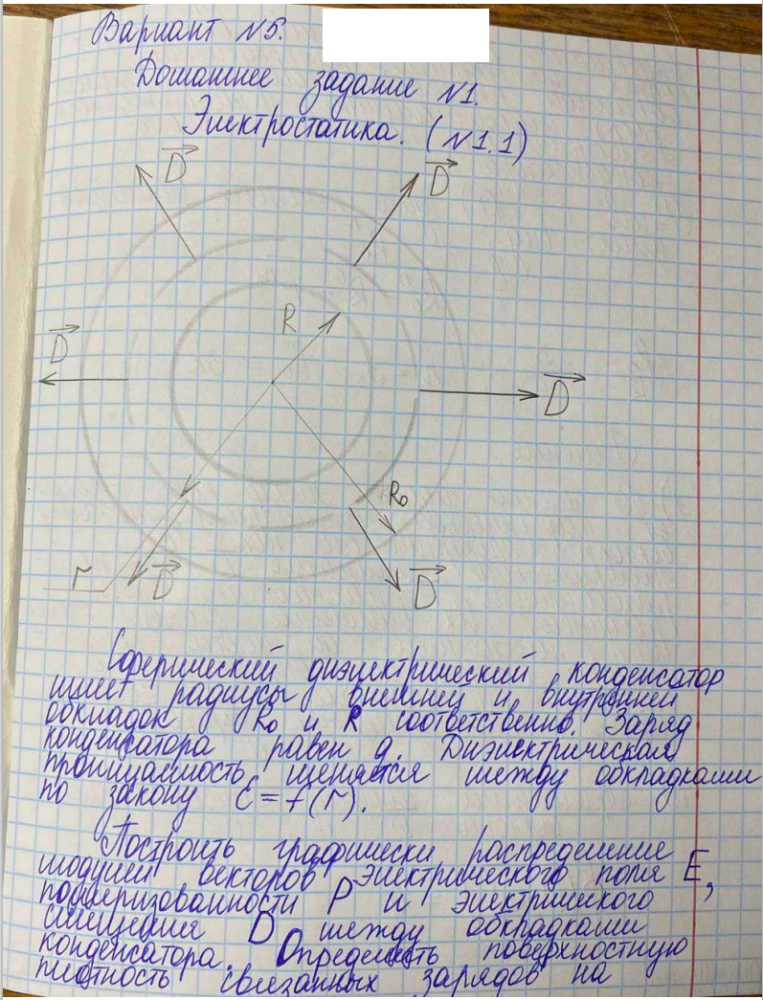 Вариант №5.
Домашнее задание №1.
Электростатика. (№1.1)
D D
R
D D
R₀
r D D
Сферический диэлектрический конденсатор
имеет радиусы внешней и внутренней
обкладок R₀ и R соответственно. Заряд
конденсатора равен q. Диэлектрическая
проницаемость меняется между обкладками
по закону ε = f(r).
Построить графически распределение
модулей векторов электрического поля E,
поляризованности P и электрического
смещения D между обкладками
конденсатора. Определить поверхностную
плотность связанных зарядов на